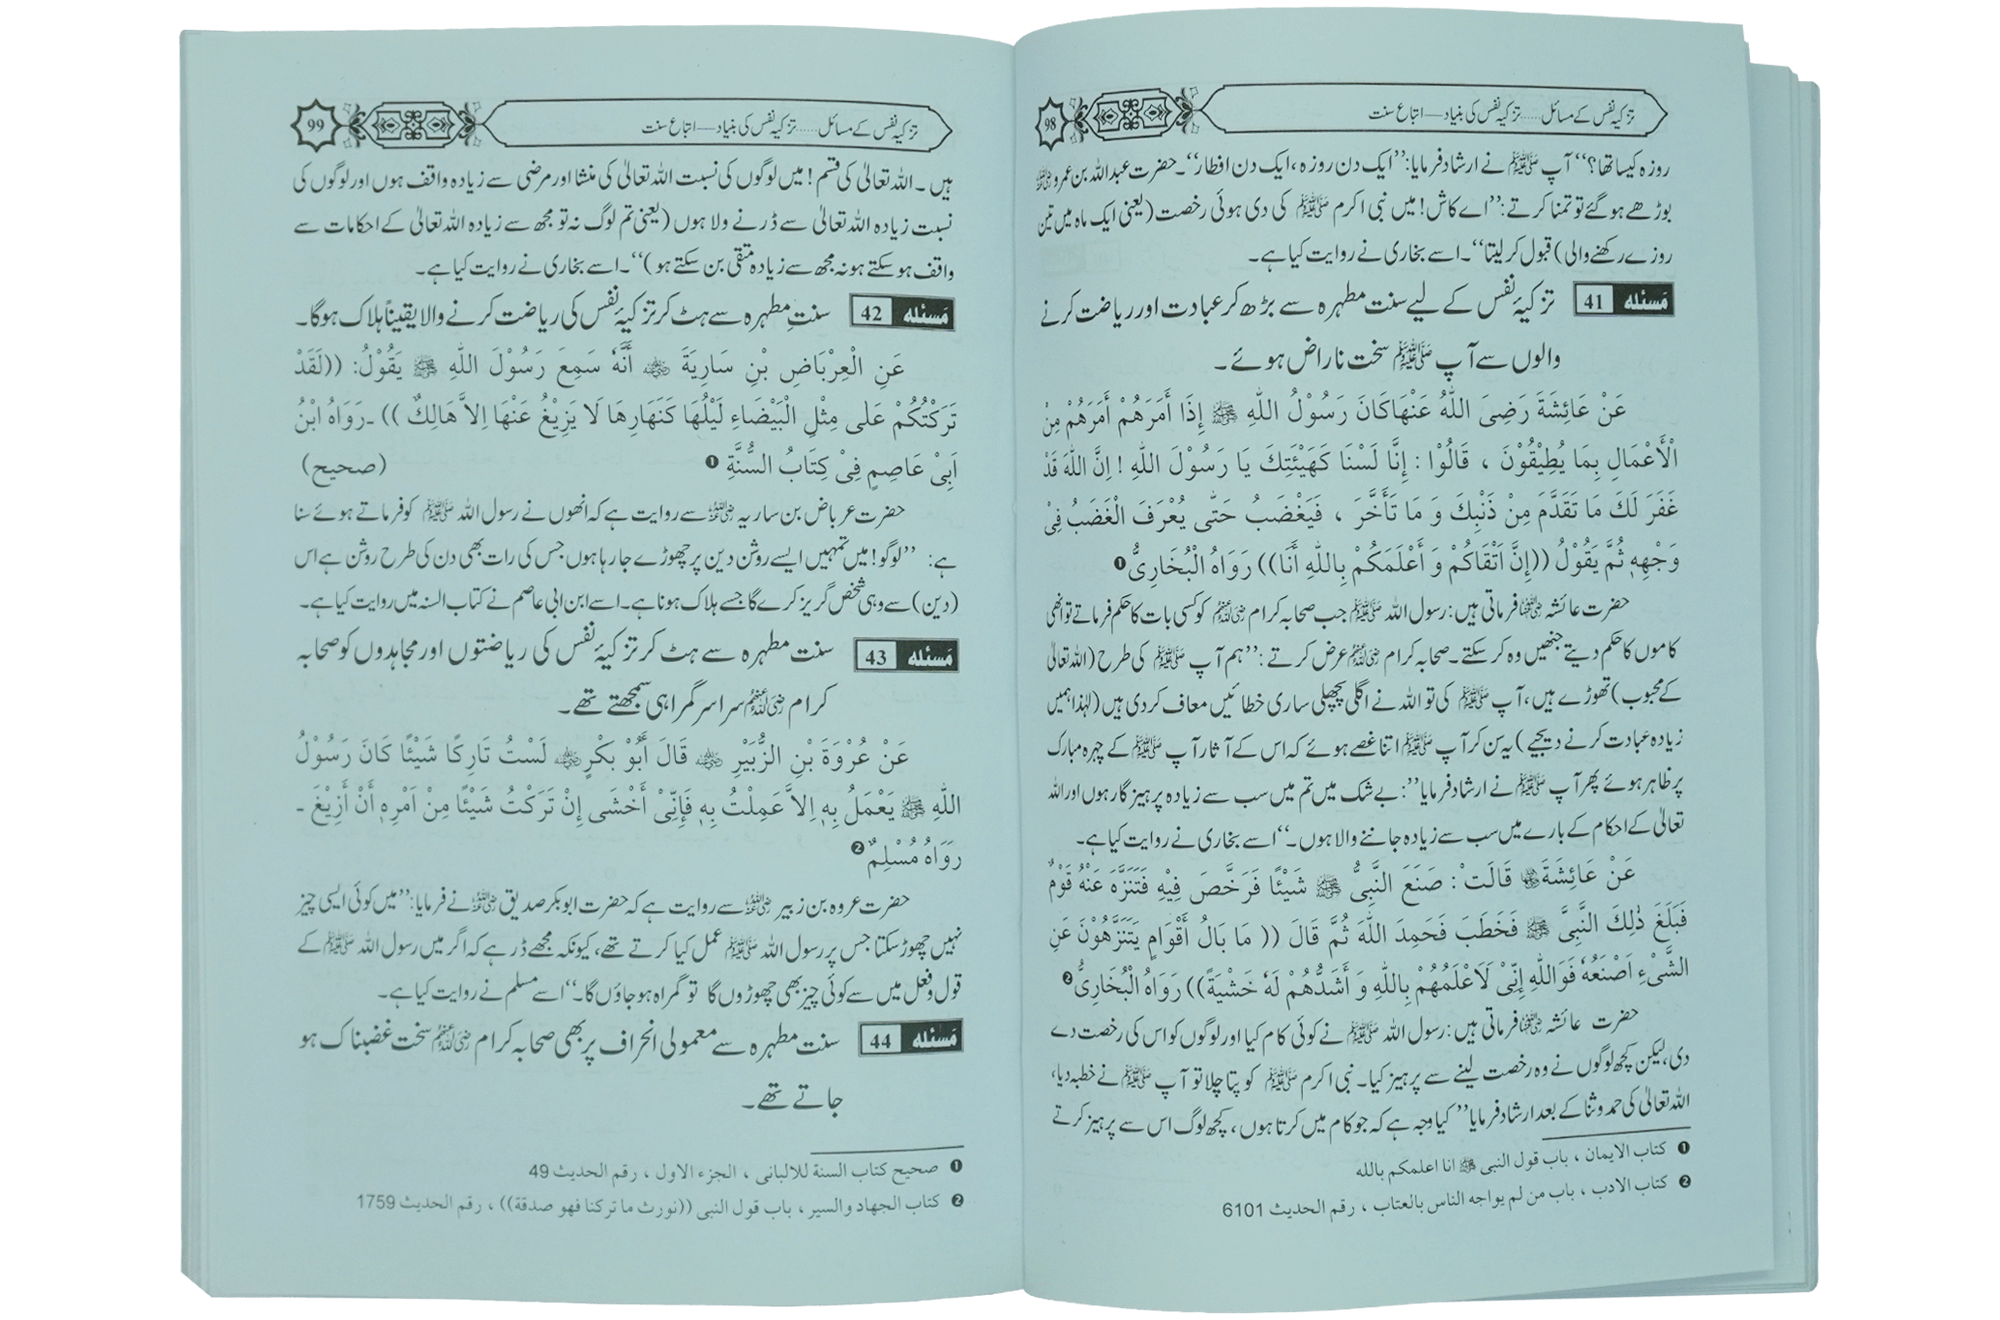 تزکیہ نفس کے مسائل.....تزکیہ نفس کی بنیاد—اتباع سنت
98
روزہ کیسا تھا؟‘‘ آپ ﷺ نے ارشاد فرمایا:’’ایک دن روزہ، ایک دن افطار‘‘۔ حضرت عبداللہ بن عمرو رضی اللہ عنہ
بوڑھے ہوگئے تو تمنا کرتے:’’اے کاش! میں نبی اکرم ﷺ کی دی ہوئی رخصت (یعنی ایک ماہ میں تین
روزے رکھنے والی) قبول کرلیتا‘‘۔ اسے بخاری نے روایت کیا ہے۔
مَسئله 41 تزکیۂ نفس کے لیے سنت مطہرہ سے بڑھ کر عبادت اور ریاضت کرنے
والوں سے آپ ﷺ سخت ناراض ہوئے۔
عَنْ عَائِشَةَ رَضِیَ اللّٰهُ عَنْهَاکَانَ رَسُوْلُ اللّٰهِ ﷺ إِذَا أَمَرَهُمْ أَمَرَهُمْ مِنَ
الْأَعْمَالِ بِمَا یُطِیْقُوْنَ ، قَالُوْا : إِنَّا لَسْنَا کَهَیْئَتِكَ یَا رَسُوْلَ اللّٰهِ ! اِنَّ اللّٰهَ قَدْ
غَفَرَ لَكَ مَا تَقَدَّمَ مِنْ ذَنْبِكَ وَ مَا تَأَخَّرَ ، فَیَغْضَبُ حَتّٰی یُعْرَفَ الْغَضَبُ فِیْ
وَجْهِهٖ ثُمَّ یَقُوْلُ ((إِنَّ اَتْقَاکُمْ وَ أَعْلَمَکُمْ بِاللّٰهِ أَنَا)) رَوَاهُ الْبُخَارِیُّ❶
حضرت عائشہ رضی اللہ عنہا فرماتی ہیں: رسول اللہ ﷺ جب صحابہ کرام رضی اللہ عنہم کو کسی بات کا حکم فرماتے تو انھی
کاموں کا حکم دیتے جنھیں وہ کرسکتے۔ صحابہ کرام رضی اللہ عنہم عرض کرتے:’’ہم آپ ﷺ کی طرح (اللہ تعالیٰ
کے محبوب) تھوڑے ہیں، آپ ﷺ کی تو اللہ نے اگلی پچھلی ساری خطائیں معاف کردی ہیں (لہٰذا ہمیں
زیادہ عبادت کرنے دیجیے) یہ سن کر آپ ﷺ اتنا غصے ہوئے کہ اس کے آثار آپ ﷺ کے چہرہ مبارک
پر ظاہر ہوئے پھر آپ ﷺ نے ارشاد فرمایا’’: بے شک میں تم میں سب سے زیادہ پرہیز گار ہوں اور اللہ
تعالیٰ کے احکام کے بارے میں سب سے زیادہ جاننے والا ہوں۔‘‘ اسے بخاری نے روایت کیا ہے۔
عَنْ عَائِشَةَ رضی اللہ عنہا قَالَتْ : صَنَعَ النَّبِیُّ ﷺ شَیْئًا فَرَخَّصَ فِیْهِ فَتَنَزَّهَ عَنْهُ قَوْمٌ
فَبَلَغَ ذٰلِكَ النَّبِیَّ ﷺ فَخَطَبَ فَحَمِدَ اللّٰهَ ثُمَّ قَالَ (( مَا بَالُ أَقْوَامٍ یَتَنَزَّهُوْنَ عَنِ
الشَّیْءِ اَصْنَعُهٗ فَوَاللّٰهِ إِنِّیْ لَاَعْلَمُهُمْ بِاللّٰهِ وَ أَشَدُّهُمْ لَهٗ خَشْیَةً)) رَوَاهُ الْبُخَارِیُّ❷
حضرت عائشہ رضی اللہ عنہا فرماتی ہیں: رسول اللہ ﷺ نے کوئی کام کیا اور لوگوں کو اس کی رخصت دے
دی، لیکن کچھ لوگوں نے وہ رخصت لینے سے پرہیز کیا۔ نبی اکرم ﷺ کو پتا چلا تو آپ ﷺ نے خطبہ دیا،
اللہ تعالیٰ کی حمد و ثنا کے بعد ارشاد فرمایا’’ کیا وجہ ہے کہ جو کام میں کرتا ہوں، کچھ لوگ اس سے پرہیز کرتے
❶ کتاب الایمان ، باب قول النبی ﷺ انا اعلمکم بالله
❷ کتاب الادب ، باب من لم یواجه الناس بالعتاب ، رقم الحدیث 6101
تزکیہ نفس کے مسائل.....تزکیہ نفس کی بنیاد—اتباع سنت
99
ہیں۔ اللہ تعالیٰ کی قسم! میں لوگوں کی نسبت اللہ تعالیٰ کی منشا اور مرضی سے زیادہ واقف ہوں اور لوگوں کی
نسبت زیادہ اللہ تعالیٰ سے ڈرنے ولا ہوں (یعنی تم لوگ نہ تو مجھ سے زیادہ اللہ تعالیٰ کے احکامات سے
واقف ہوسکتے ہو نہ مجھ سے زیادہ متقی بن سکتے ہو)‘‘۔ اسے بخاری نے روایت کیا ہے۔
مَسئله 42 سنتِ مطہرہ سے ہٹ کر تزکیۂ نفس کی ریاضت کرنے والا یقیناً ہلاک ہوگا۔
عَنِ الْعِرْبَاضِ بْنِ سَارِیَةَ رضی اللہ عنہ أَنَّهٗ سَمِعَ رَسُوْلَ اللّٰهِ ﷺ یَقُوْلُ: ((لَقَدْ
تَرَکْتُکُمْ عَلٰی مِثْلِ الْبَیْضَاءِ لَیْلُهَا کَنَهَارِهَا لَا یَزِیْغُ عَنْهَا اِلاَّ هَالِكٌ )) ۔رَوَاهُ ابْنُ
اَبِیْ عَاصِمٍ فِیْ کِتَابُ السُّنَّةِ ❶ (صحیح)
حضرت عرباض بن ساریہ رضی اللہ عنہ سے روایت ہے کہ انھوں نے رسول اللہ ﷺ کو فرماتے ہوئے سنا
ہے: ’’لوگو! میں تمہیں ایسے روشن دین پر چھوڑے جارہا ہوں جس کی رات بھی دن کی طرح روشن ہے اس
(دین) سے وہی شخص گریز کرے گا جسے ہلاک ہونا ہے۔ اسے ابن ابی عاصم نے کتاب السنہ میں روایت کیا ہے۔
مَسئله 43 سنت مطہرہ سے ہٹ کر تزکیۂ نفس کی ریاضتوں اور مجاہدوں کو صحابہ
کرام رضی اللہ عنہم سراسر گمراہی سمجھتے تھے۔
عَنْ عُرْوَةَ بْنِ الزُّبَیْرِ رضی اللہ عنہ قَالَ أَبُوْ بَکْرٍ رضی اللہ عنہ لَسْتُ تَارِکًا شَیْئًا کَانَ رَسُوْلُ
اللّٰهِ ﷺ یَعْمَلُ بِهٖ اِلاَّ عَمِلْتُ بِهٖ فَإِنِّیْ أَخْشَی إِنْ تَرَکْتُ شَیْئًا مِنْ اَمْرِهٖ أَنْ أَزِیْغَ ۔
رَوَاهُ مُسْلِمٌ❷
حضرت عروہ بن زبیر رضی اللہ عنہ سے روایت ہے کہ حضرت ابوبکر صدیق رضی اللہ عنہ نے فرمایا:’’میں کوئی ایسی چیز
نہیں چھوڑ سکتا جس پر رسول اللہ ﷺ عمل کیا کرتے تھے، کیونکہ مجھے ڈر ہے کہ اگر میں رسول اللہ ﷺ کے
قول و فعل میں سے کوئی چیز بھی چھوڑوں گا تو گمراہ ہوجاؤں گا۔‘‘ اسے مسلم نے روایت کیا ہے۔
مَسئله 44 سنت مطہرہ سے معمولی انحراف پر بھی صحابہ کرام رضی اللہ عنہم سخت غضبناک ہو
جاتے تھے۔
❶ صحیح کتاب السنة للالبانی ، الجزء الاول ، رقم الحدیث 49
❷ کتاب الجهاد والسیر ، باب قول النبی ((نورث ما ترکنا فهو صدقة)) ، رقم الحدیث 1759